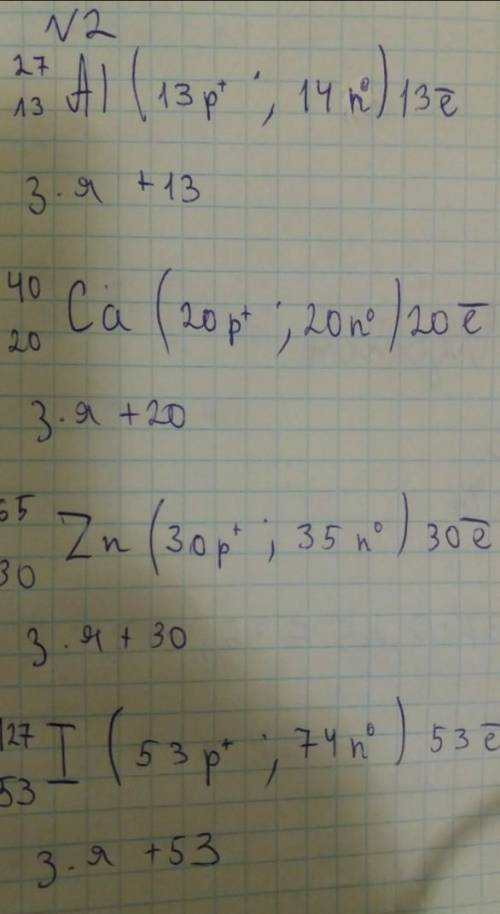 №2
27 13 Al (13p⁺ ; 14n⁰) 13ē
з.я +13
40 20 Ca (20p⁺ ; 20n⁰) 20ē
з.я +20
65 30 Zn (30p⁺ ; 35n⁰) 30ē
з.я +30
127 53 I (53p⁺ ; 74n⁰) 53ē
з.я +53